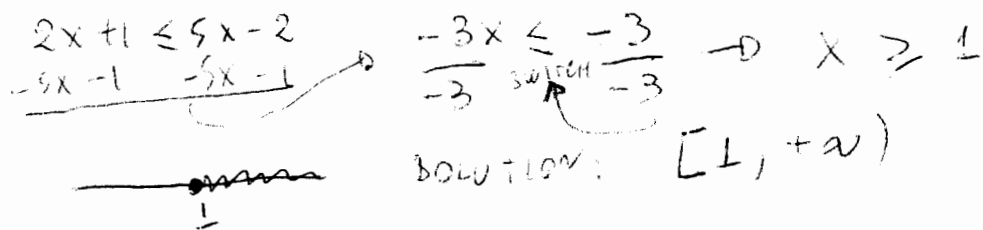 2x + 1 ≤ 5x - 2
-5x - 1 -5x - 1
-3x ≤ -3 → x ≥ 1
-3 SWITCH -3
SOLUTION: [1, +∞)
1